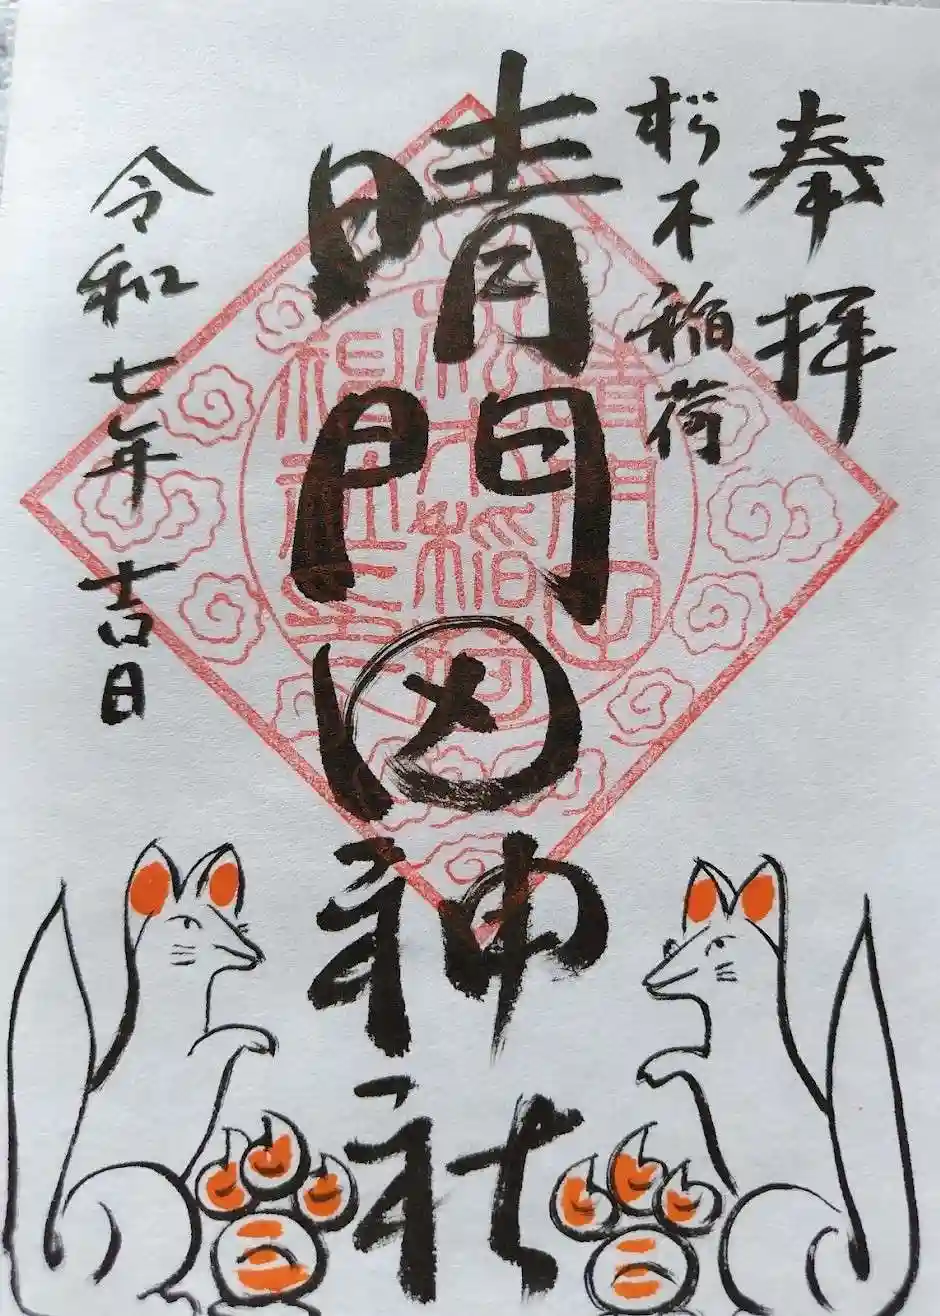 奉拝
松木稲荷
晴門田神社
令和七年 吉日